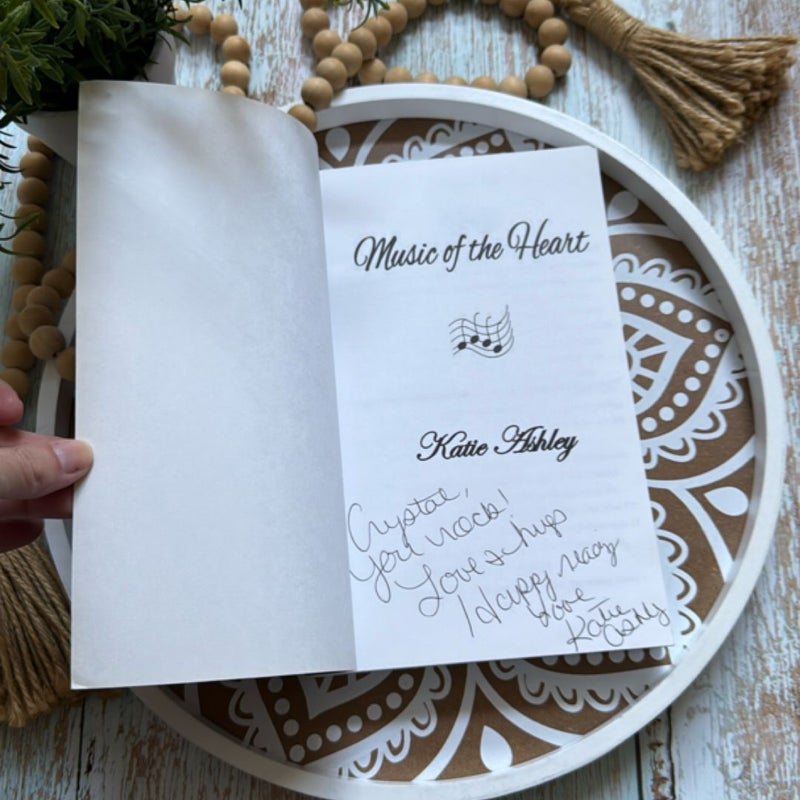 Music of the Heart
Katie Ashley
Crystal,
You rock!
Love & hugs
Happy reading
Love
Katie
Ashley